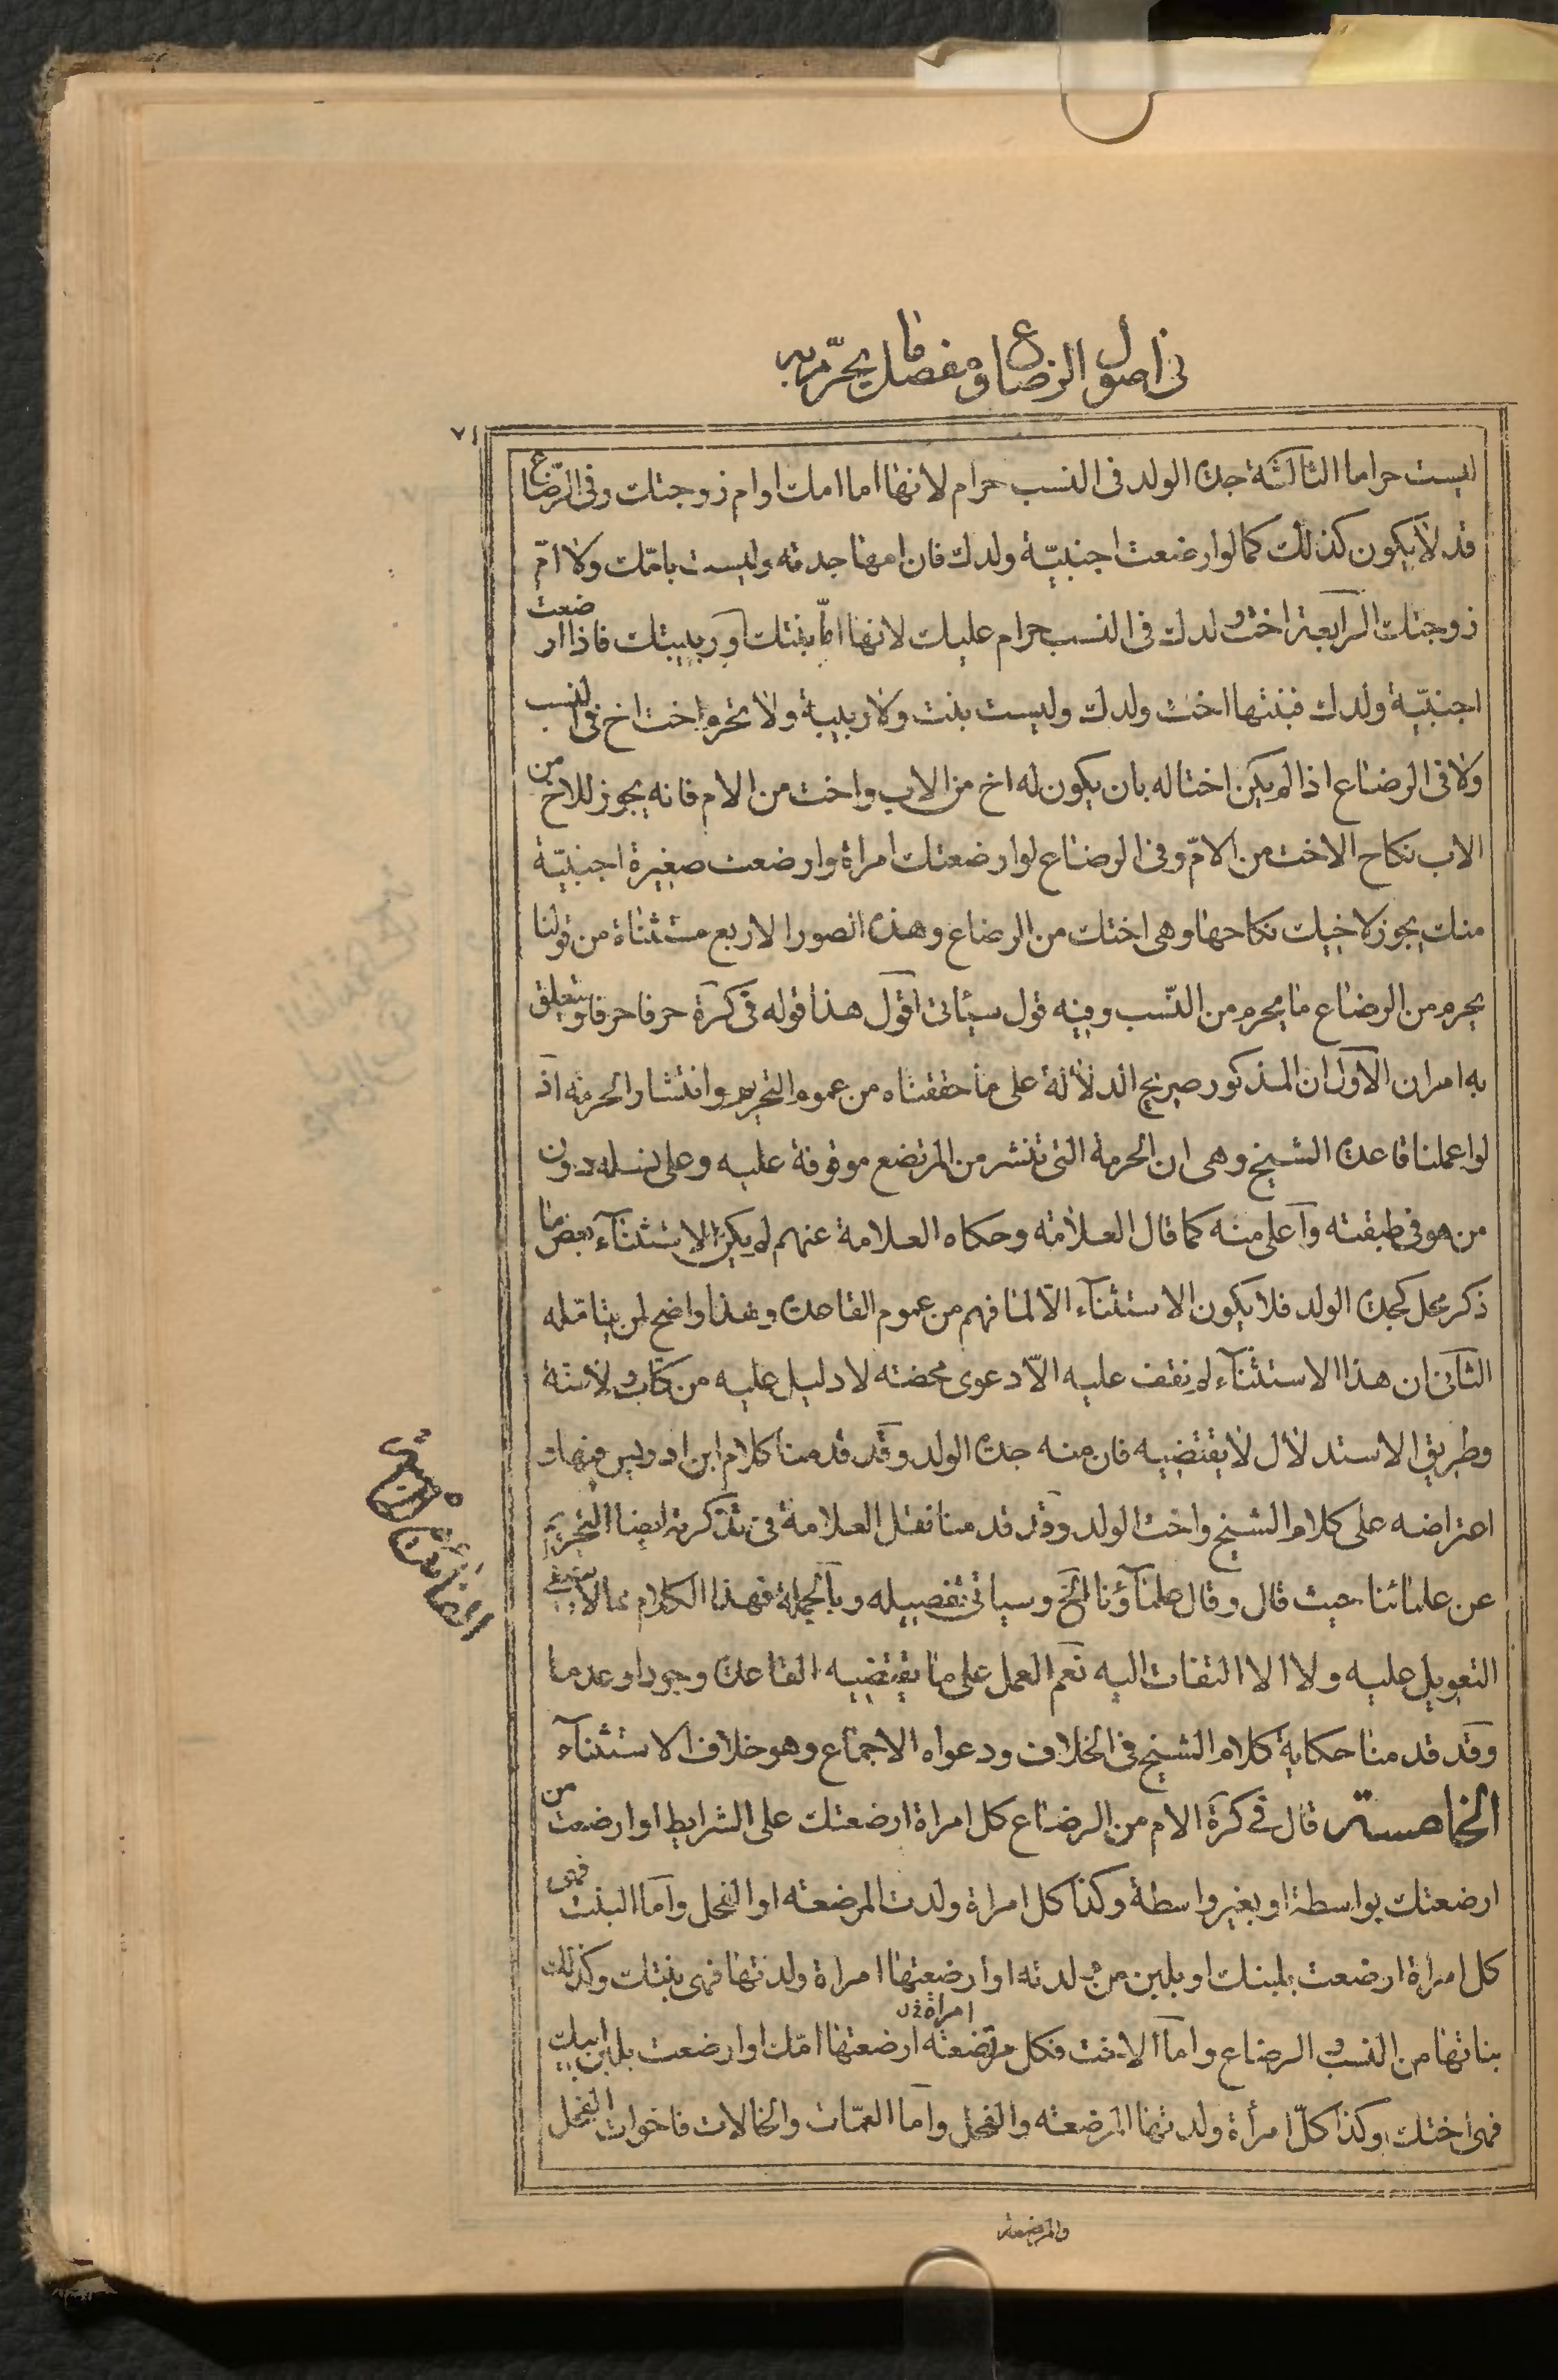 فى اصول الرضاع ومفصل ما يحرّم به
٧١
ليست حراما الثالثة جدة الولد فى النسب حرام لانها اما امك او ام زوجتك وفى الرّضاع
قد لا يكون كذلك كما لو ارضعت اجنبيّة ولدك فان امها جدته وليست بامّك ولا امّ
زوجتك الرابعة اخت ولدك فى النسب حرام عليك لانها امّا بنتك او ربيبتك فاذا ارضعت
اجنبيّة ولدك فبنتها اخت ولدك وليست بنت ولا ربيبة ولا تحرم اخت اخ فى النسب
ولا فى الرضاع اذا لم يكن اختا له بان يكون له اخ من الاب واخت من الام فانه يجوز للاخ من
الاب نكاح الاخت من الامّ وفى الرضاع لو ارضعتك امراة وارضعت صغيرة اجنبيّة
منك يجوز لاخيك نكاحها وهى اختك من الرضاع وهذه الصور الاربع مستثناة من قولنا
يحرم من الرضاع ما يحرم من النّسب وفيه قول سيأتى اقول هذا قوله فى كرة حرفا حرفا ويتعلق
به امران الاول ان المذكور صريح الدلالة على ما حققناه من عموم التحريم وانتشار الحرمة اذ
لو اعملنا قاعدة الشيخ وهى ان الحرمة التى تنشر من المرتضع موقوفة عليه وعلى نسله دون
من هو فى طبقته واعلى منه كما قال العلامة وحكاه العلامة عنهم لم يكن لاستثناء بعض ما
ذكر محل كجدة الولد فلا يكون الاستثناء الّا لما فهم من عموم القاعدة وهذا واضح لمن يتامّله
الثانى ان هذا الاستثناء لم نقف عليه الّا دعوى محضة لا دليل عليه من كتاب ولا سنة
وطريق الاستدلال لا يقتضيه فان منه جدة الولد وقد قدمنا كلام ابن ادريس فيها و
اعتراضه على كلام الشيخ واخت الولد وقد قدمنا نقل العلامة فى تذكرته ايضا التحريم
عن علمائنا حيث قال وقال علماؤنا الخ وسياتى تفصيله وبالجملة فهذا الكلام مما لا ينبغى
التعويل عليه ولا الالتفات اليه نعم العمل على ما يقتضيه القاعدة وجودا وعدما
وقد قدمنا حكاية كلام الشيخ فى الخلاف ودعواه الاجماع وهو خلاف الاستثناء
الخامسة قال فى كرة الام من الرضاع كل امراة ارضعتك على الشرايط او ارضعت من
ارضعتك بواسطة او بغير واسطة وكذا كل امراة ولدت المرضعة او الفحل واما البنت فهى
كل امراة ارضعت بلبنك او بلبن من ولدته او ارضعتها امراة ولدتها فهى بنتك وكذلك
بناتها من النسب والرضاع واما الاخت فكل مرتضعة ارضعتها امّك او ارضعت بلبن ابيك
امراة
فهى اختك وكذا كلّ امرأة ولدتها المرضعة والفحل واما العمّات والخالات فاخوات الفحل
والمرضعة